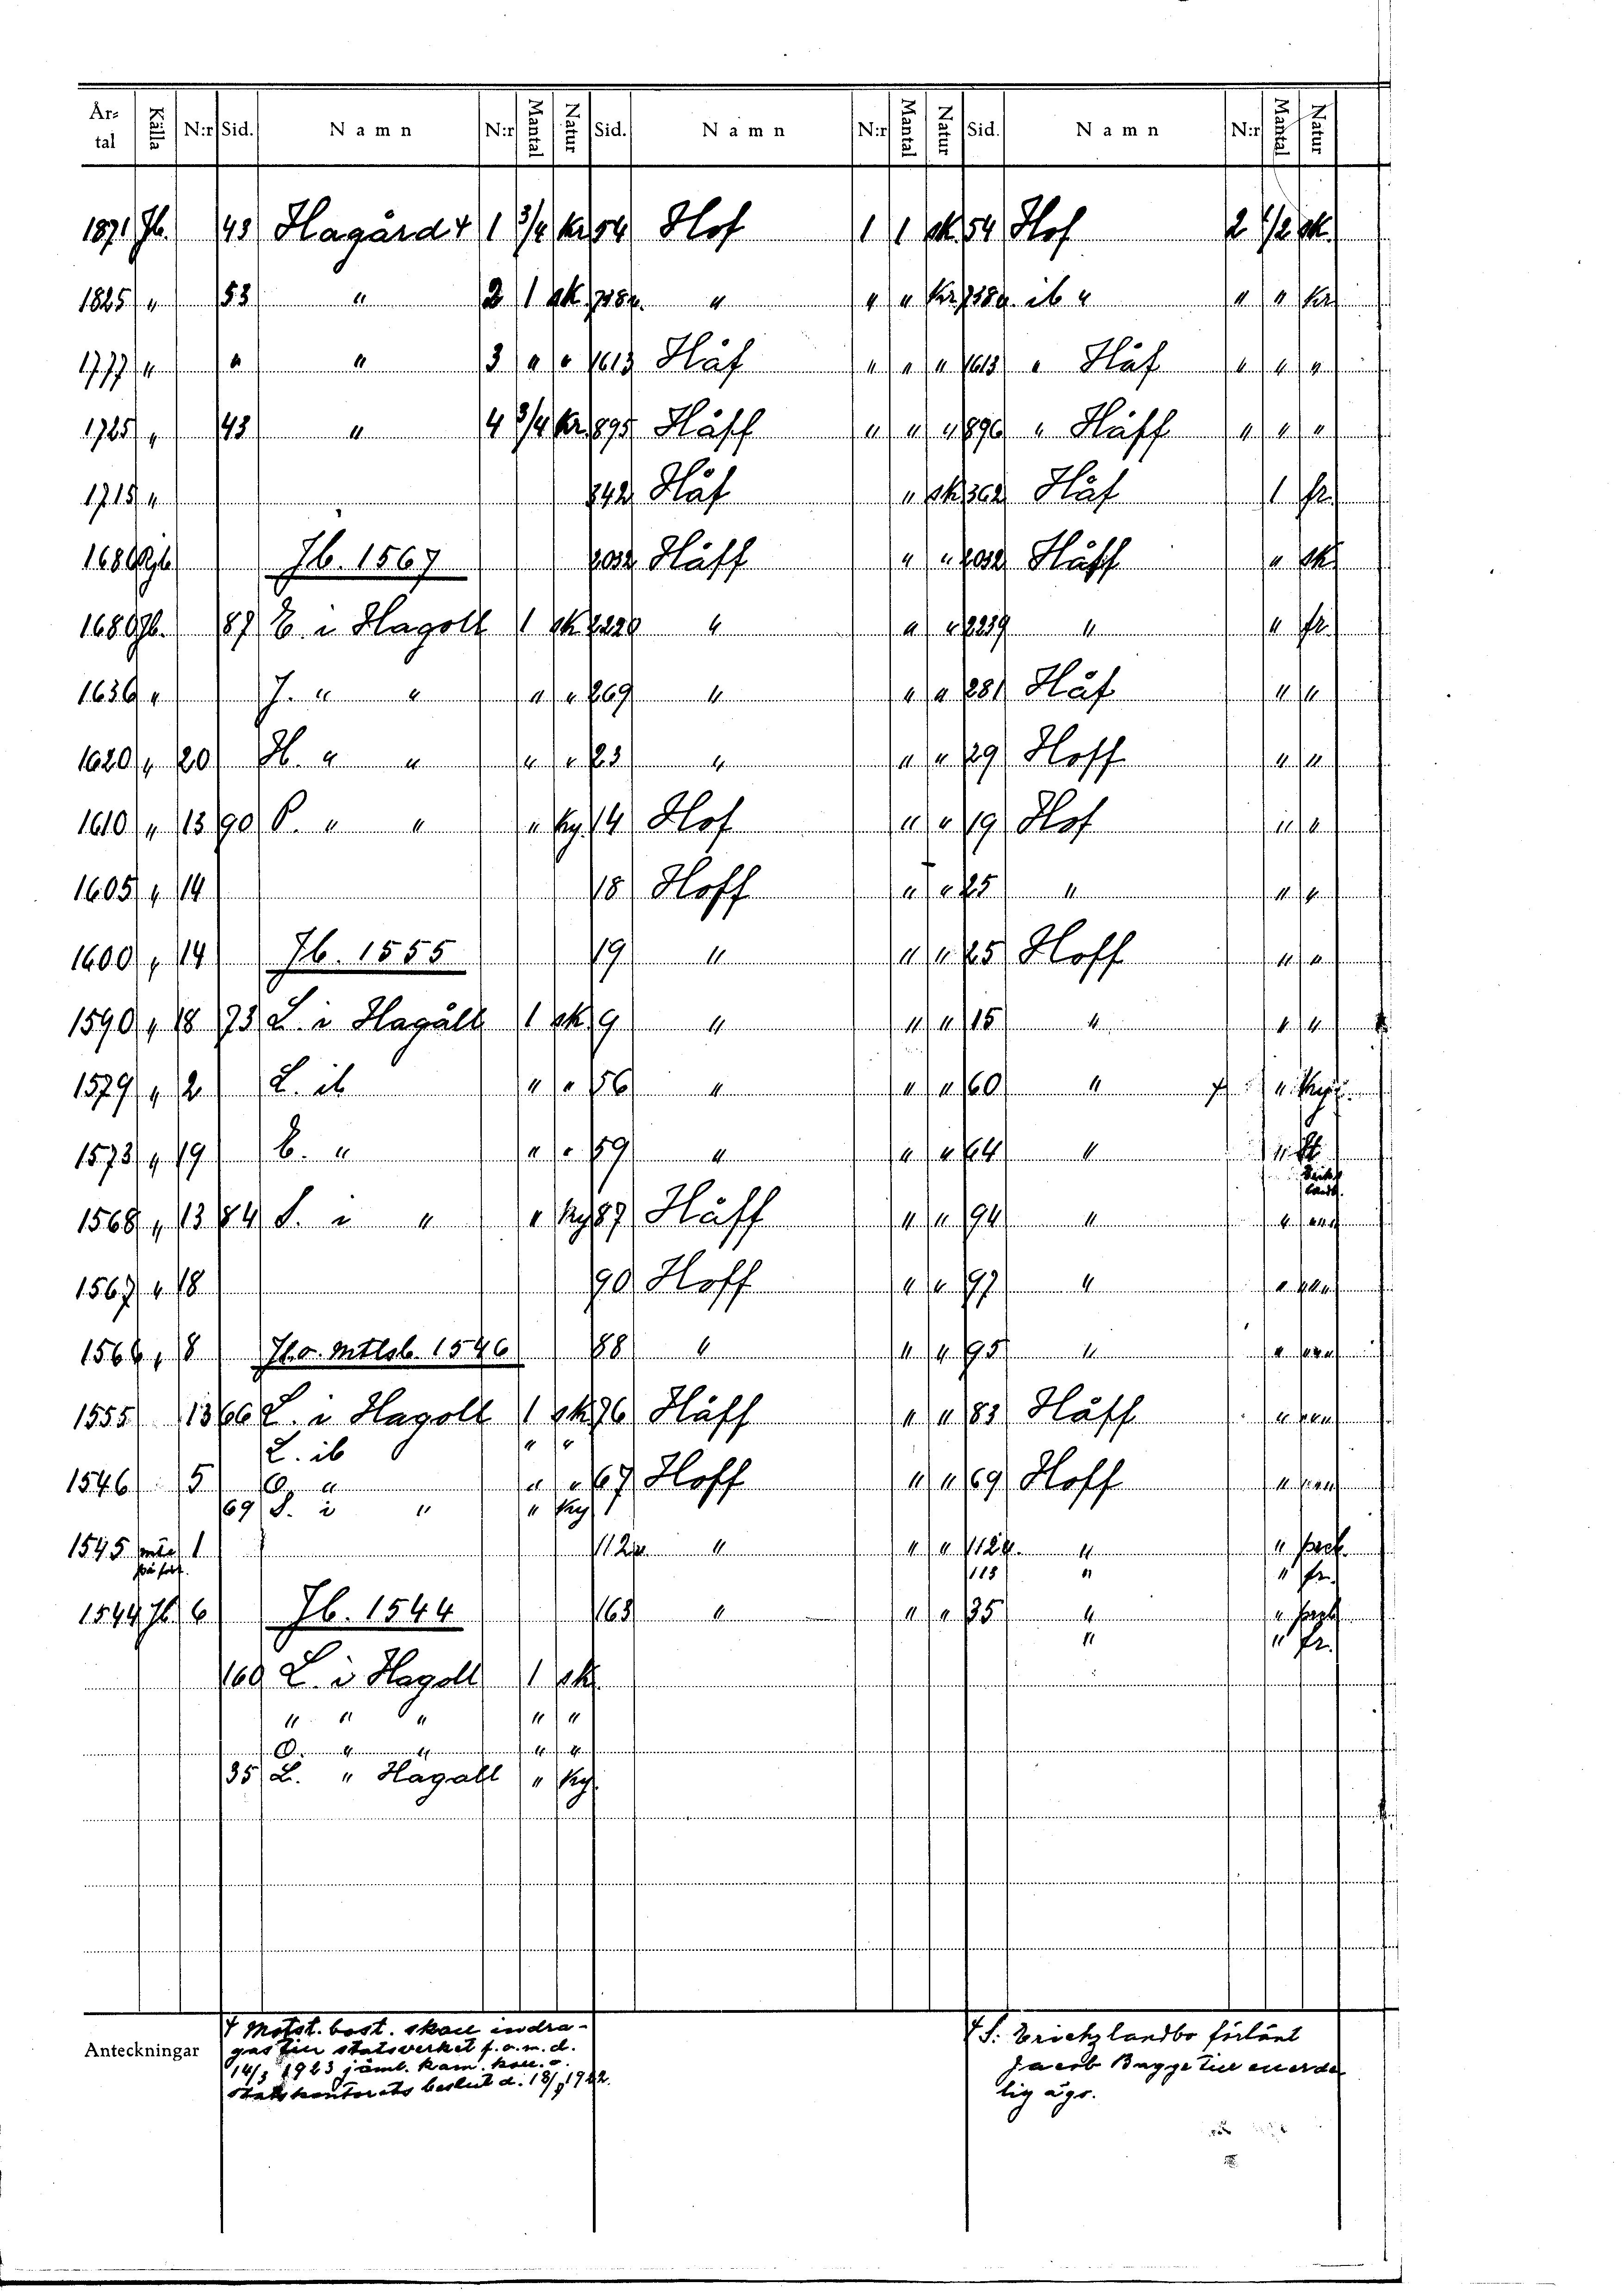 År-tal Källa N:r Sid. Namn N:r Mantal Natur Sid. Namn N:r Mantal Natur Sid. Namn N:r Mantal Natur
1871 Jb. 43 Hagård + 1 3/4 kr 54 Hof 1 1 sk. 54 Hof 2 1/2 sk.
1825 " 53 " 2 1 sk. 738a. " " " kr. 738a. ib " " " kr
1777 " " " 3 " " 1613 Håf " " " 1613 " Håf " " "
1725 " 43 " 4 3/4 kr. 895 Håff " " " 896 " Håff " " "
1715 " 342 Håf " sk 362 Håf 1 fr.
1680 Jb. 1567 2032 Håff " " 2032 Håff " sk
1680 Jb. 87 E. i Hagoll 1 sk 2220 " " " 2239 " " fr.
1636 " J. " " " " 269 " " " 281 Håf " "
1620 " 20 H. " " " " 23 " " " 29 Hoff " "
1610 " 13 90 P. " " " ky. 14 Hof " " 19 Hof " "
1605 " 14 18 Hoff " " 25 " " "
1600 " 14 Jb. 1555 19 " " " 25 Hoff " "
1590 " 18 73 L. i Hagåll 1 sk 9 " " " 15 " " "
1579 " 2 L. ib " " 56 " " " 60 " + "
1573 " 19 E. " " " 59 " " " 64 " "
1568 " 13 84 S. i " " ky 87 Håff " " 94 " " " " "
1567 " 18 90 Hoff " " 97 " " " " "
1566 " 8 Jb. o. Mtlsb. 1546 88 " " " 95 " " " " "
1555 13 66 L. i Hagoll 1 sk 76 Håff " " 83 Håff " " " "
L. ib " "
1546 5 O. " " " 67 Hoff " " 69 Hoff " " " "
69 S. i " " ky
1545 1 112a. " " " 112a. " "
113 " " fr.
1544 Jb. 6 Jb. 1544 163 " " " 35 " "
" " fr.
160 L. i Hagoll 1 sk.
" " " " "
O. " " " "
35 L. " Hagall " ky.
Anteckningar
+ Motst. bost. skall indra-
gas till statsverket f.o.m. d.
14/3 1923 jäml. kam. koll. o.
statskontorets beslut d. 18/9 1922.
+ S. Erichz landbo förlänt
Jacob Bagge till ewerde
lig ägo.